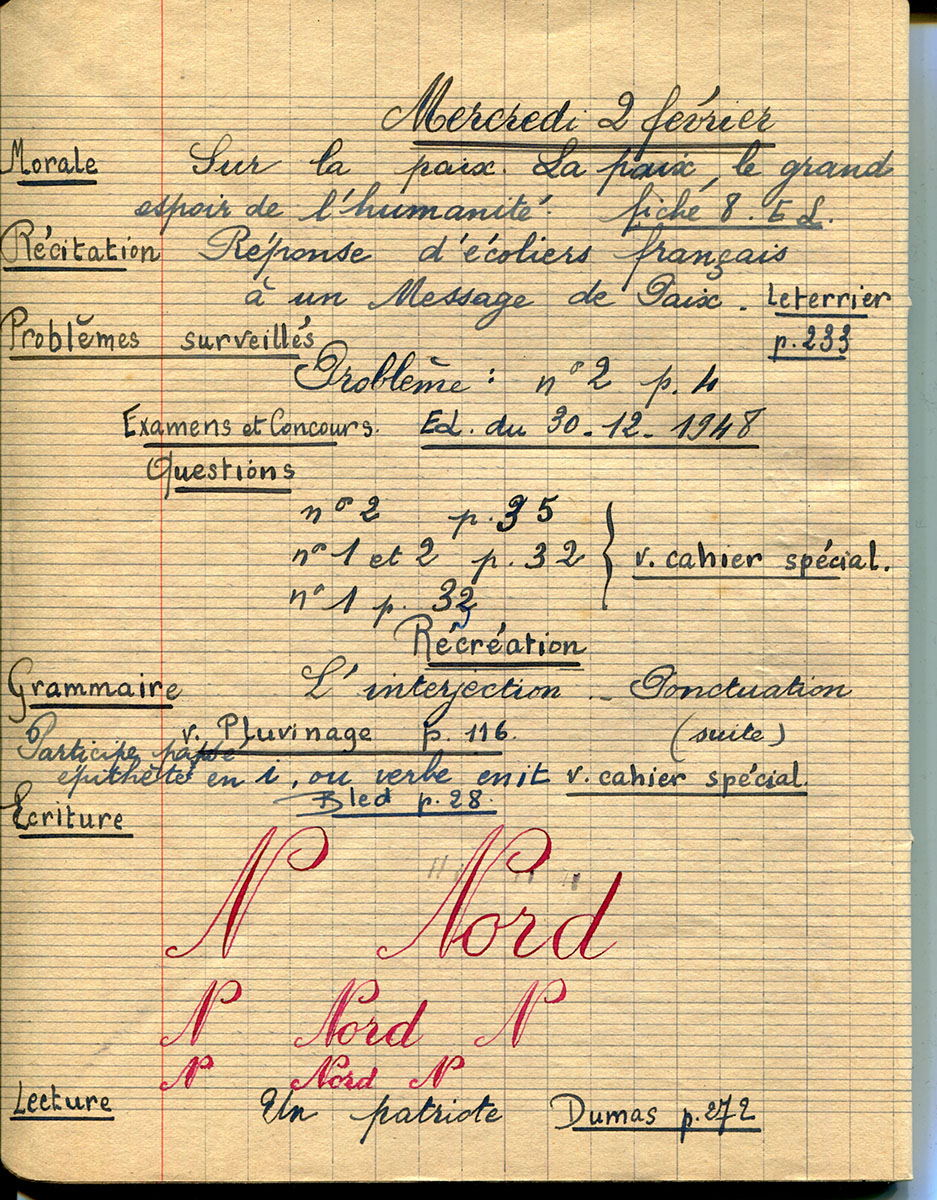 Mercredi 2 février
Morale Sur la paix. La paix, le grand
espoir de l'humanité. fiche 8. Ed.
Récitation Réponse d'écoliers français
à un Message de Paix. Leterrier
p. 233
Problèmes surveillés
Problème : n° 2 p. 4
Examens et Concours. Ed. du 30-12-1948
Questions
n° 2 p. 35
n° 1 et 2 p. 32 } v. cahier spécial.
n° 1 p. 32
Récréation
Grammaire L'interjection - Ponctuation
v. Pluvinage p. 116. (suite)
Participe passé
épithète en i, ou verbe en it v. cahier spécial
Bled p. 28.
Ecriture
N Nord
N Nord N
N Nord N
Lecture Un patriote Dumas p. 272